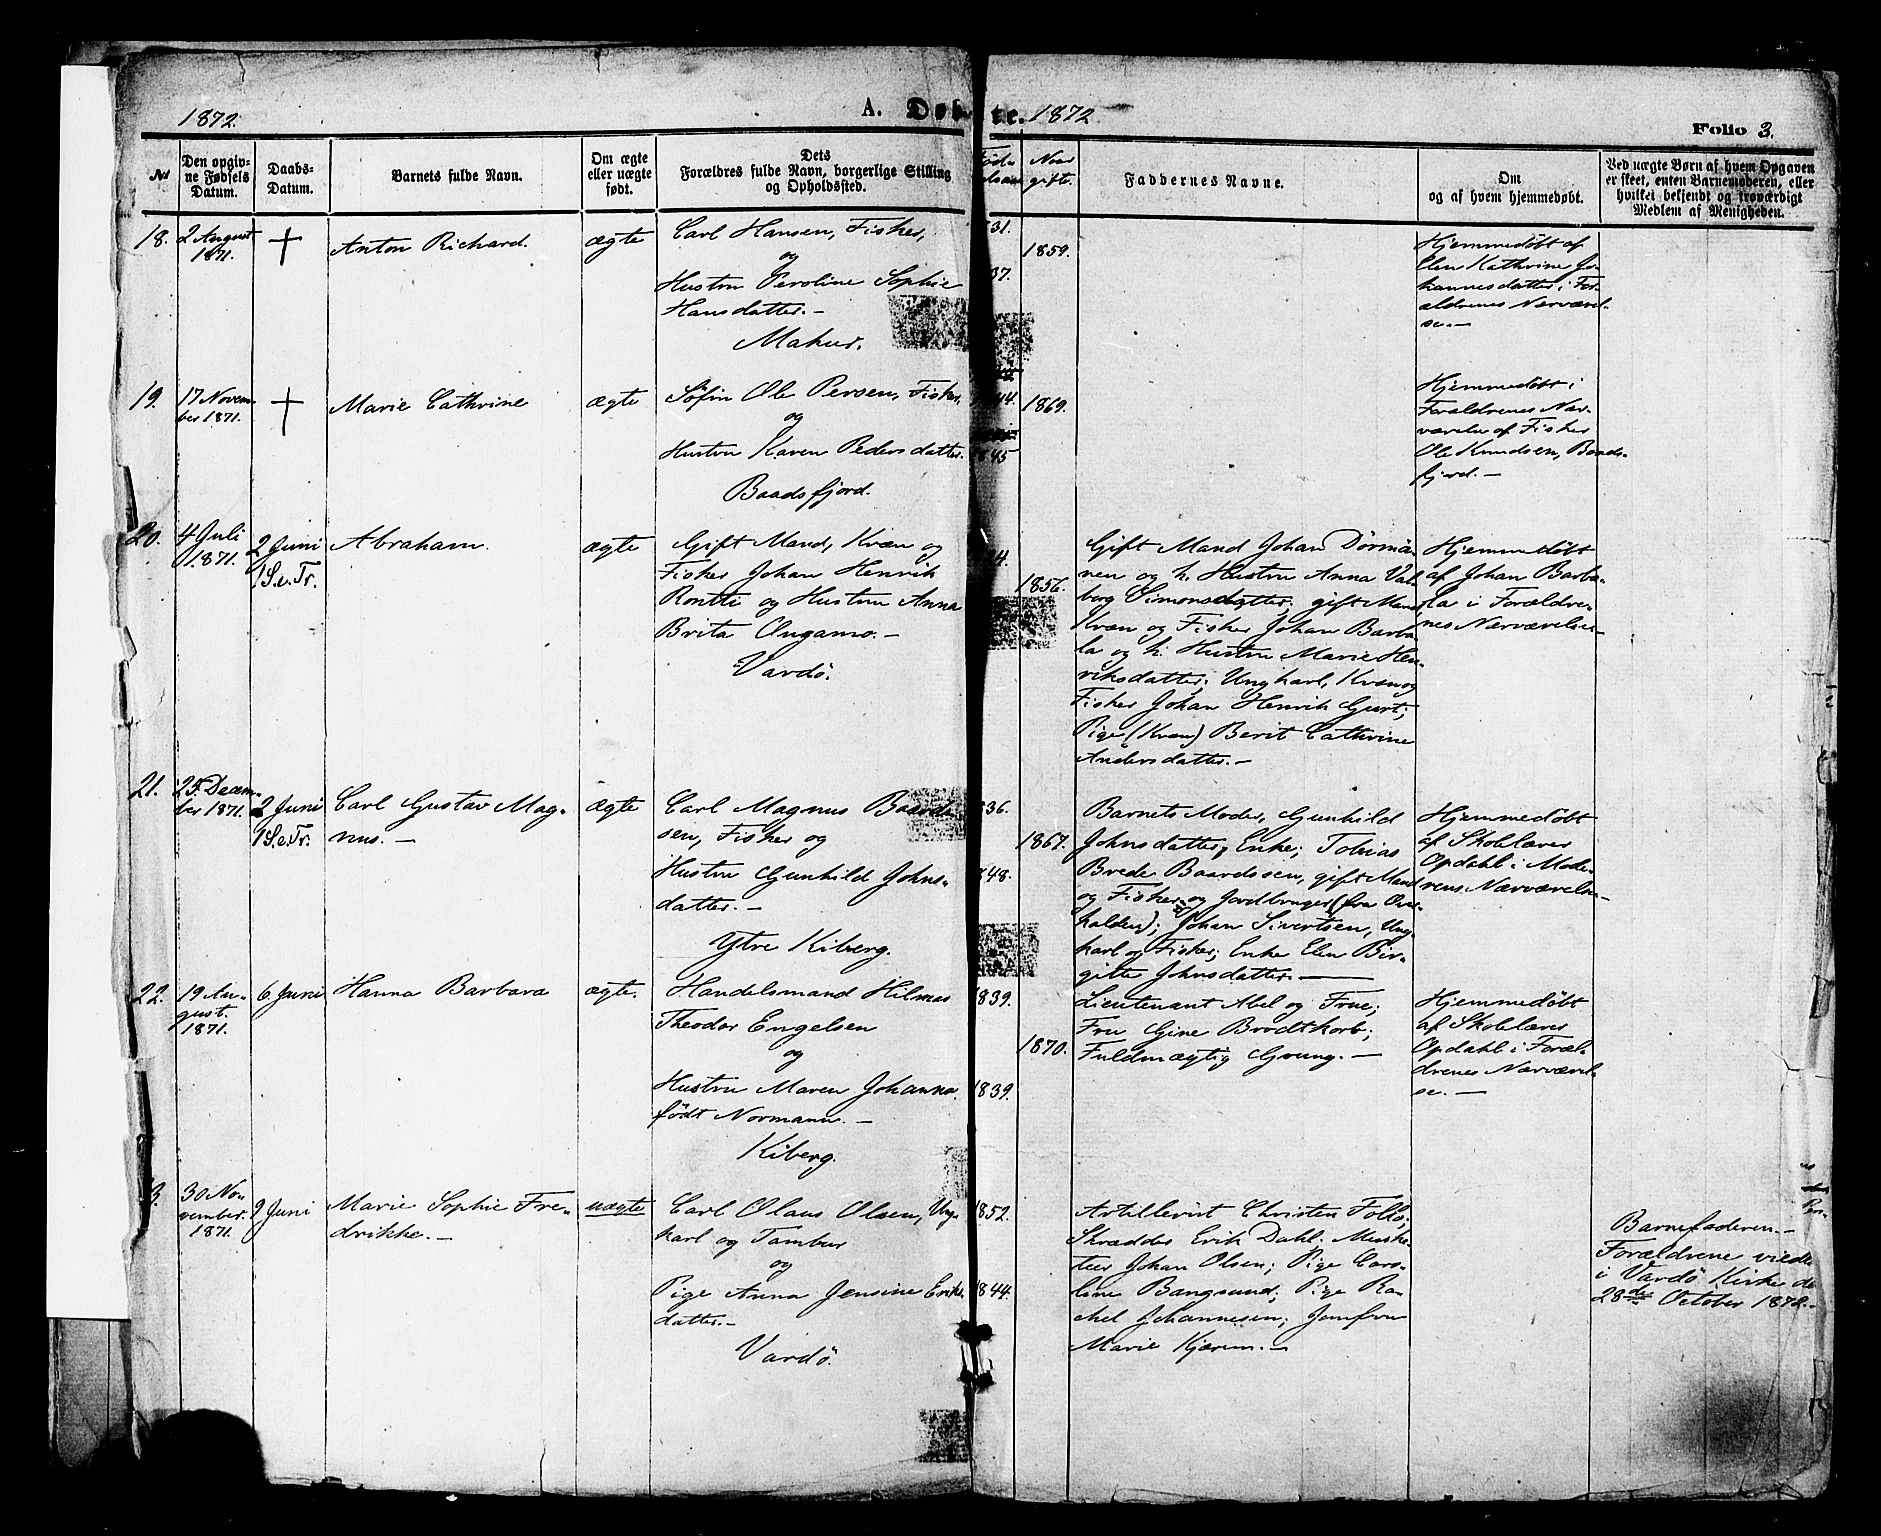 1872.
A. Døbte. 1872
Folio 3.
No
Den opgiv-
ne Fødsels
Datum.
Daabs-
Datum.
Barnets fulde Navn.
Om ægte
eller uægte
født.
Dets
Forældres fulde Navn, borgerlige Stilling
og Opholdssted.
Naar
gift.
Faddernes Navne.
Om
og af hvem hjemmedøbt.
Ved uægte Børn af hvem Opgaven
er skeet, enten Barnemoderen, eller
hvilket bekjendt og troværdigt
Medlem af Menigheden.
18.
2 August
1871.
†
Anton Richard.
ægte
Carl Hansen, Fisker,
og
Hustru Peroline Sophie
Hansdatter.—
Makur.
31.
37.
1859.
Hjemmedøbt af
Elen Kathrine Jo-
hannesdatter i For-
ældrenes Nærværel-
se.—
19.
17 Novem-
ber 1871.
†
Marie Cathrine
ægte
Söfin Ole Persen, Fisker,
og
Hustru Karen Pedersdatter.
Baadsfjord.
44.
1845
1869.
Hjemmedøbt i
Forældrenes Nær-
værelse af Fisker
Ole Knudsen, Baads-
fjord.—
20.
4 Juli
1871.
2 Juni
1 S.e.Tr.
Abraham.
ægte
Gift Mand, Kvæn og
Fisker Johan Henrik
Rontti og Hustru Anna
Brita Ongamo.—
Vardö.
1856.
Gift Mand Johan Dörmä-
nen og h. Hustru Anna Val-
borg Simonsdatter; gift Mand,
Kvæn og Fisker Johan Barba-
la og h. Hustru Marie Hen-
riksdatter; Ungkarl, Kvæn og
Fisker Johan Henrik Gurt;
Pige (Kvæn) Berit Cathrine
Andersdatter.—
Hjemmedøbt
af Johan Barba-
la i Forældre-
nes Nærværelse—
21.
25. Decem-
ber 1871.
2 Juni
1 S.e.Tr.
Carl Gustav Mag-
nus.—
ægte
Carl Magnus Baards-
sen, Fisker og
Hustru Gunhild Johns-
datter.—
Ytre Kiberg.
836.
848.
1867.
Barnets Moder, Gunhild
Johnsdatter, Enke; Tobias
Brede Baardssen, gift Mand
og Fisker og Jordbruger (fra Over-
halden); Johan Sivertsen, Ung-
karl og Fisker; Enke Elen Bir-
gitte Johnsdatter.—
Hjemmedøbt
af Skolelærer
Opdahl i Mode-
rens Nærværelse—
22.
19 Au-
gust.
1871.
6 Juni
Hanna Barbara
ægte.
Handelsmand Hilmar
Theodor Engelsen
og
Hustru Maren Johanna
født Normann.—
Kiberg.
1839.
1839.
1870.
Lieutenant Abel og Frue;
Fru Gine Brodtkorb;
Fuldmægtig Gvung.—
Hjemmedøbt
af Skolelærer
Opdahl i Foræl-
drenes Nærværel-
se.—
3.
30 No-
vember.
1871.
9 Juni
Marie Sophie Fre-
drikke.—
uægte
Carl Olaus Olsen, Ung-
karl og Tambur
og
Pige Anna Jensine Eriks-
datter.—
Vardö.
1852.
1844.
Artillerist Christen Follo;
Skrædder Erik Dahl. Muske-
teer Johan Olsen; Pige Caro-
line Bangsund; Pige Ra-
chel Johannesen; Jomfru
Marie Kjærem.—
Barnefaderen.—
Forældrene viede
i Vardö Kirke de
28de October 1872.